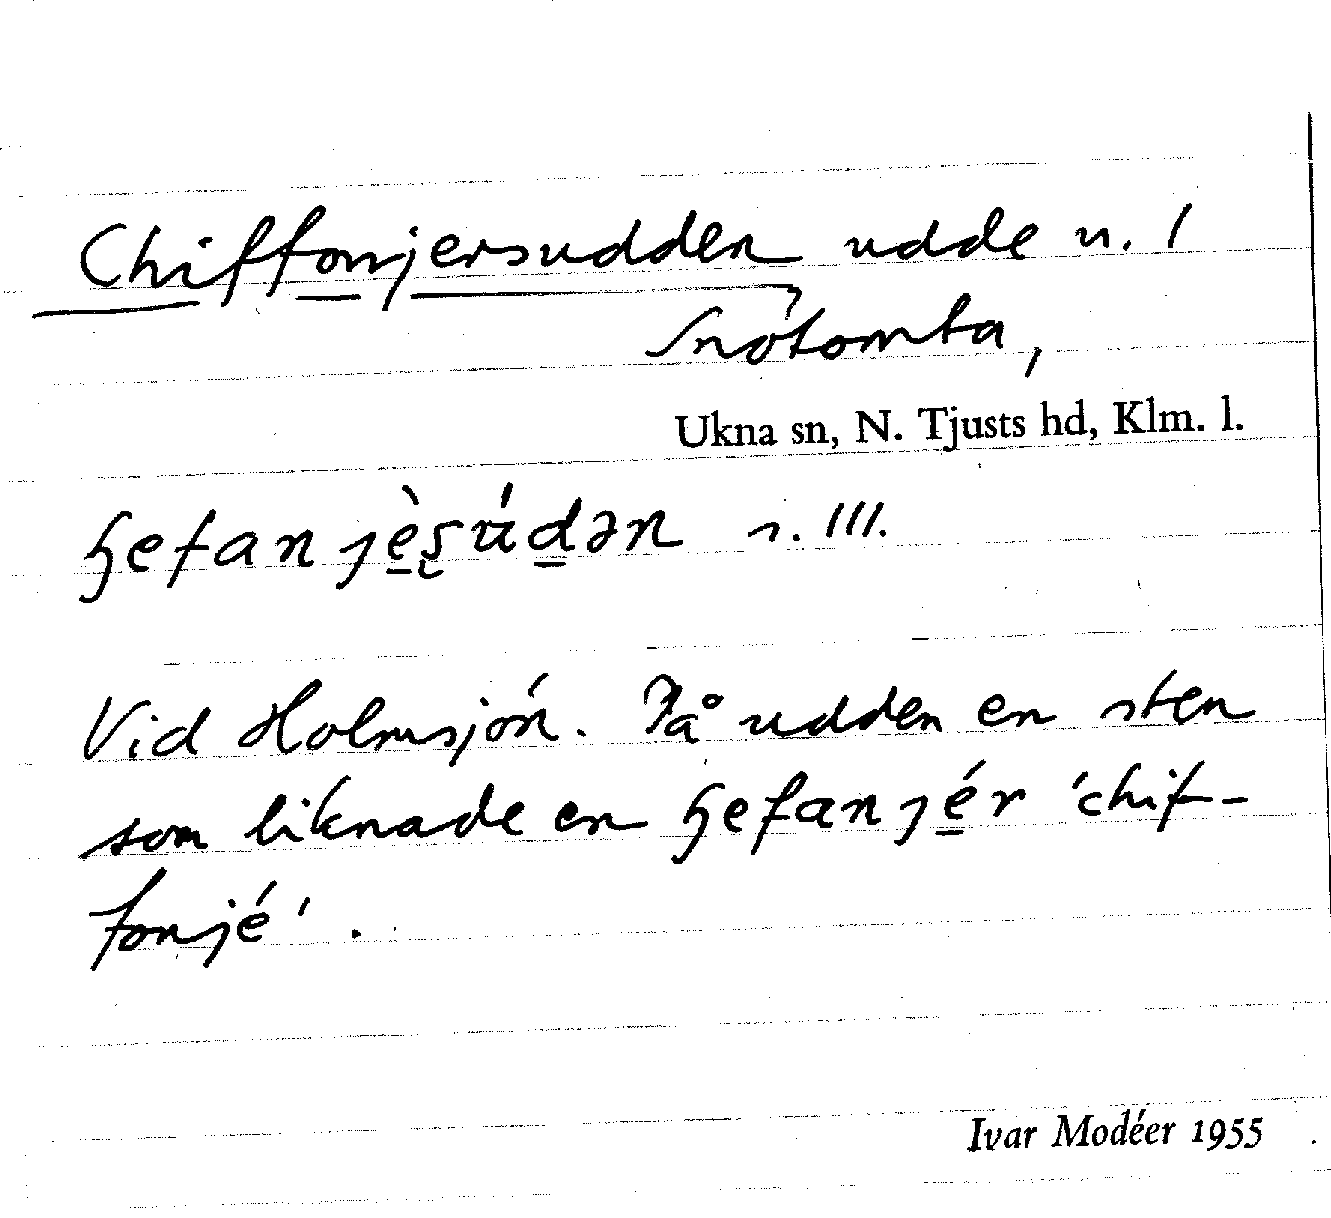 Chiffonjersudden udde u. /
Snötomta,
Ukna sn, N. Tjusts hd, Klm. l.
ɧefanjè̱ʂu̇́d̲ən s. III.
Vid Holmsjön. På udden en sten
som liknade en ɧefanjé̱r 'chif-
fonjé'.
Ivar Modéer 1955